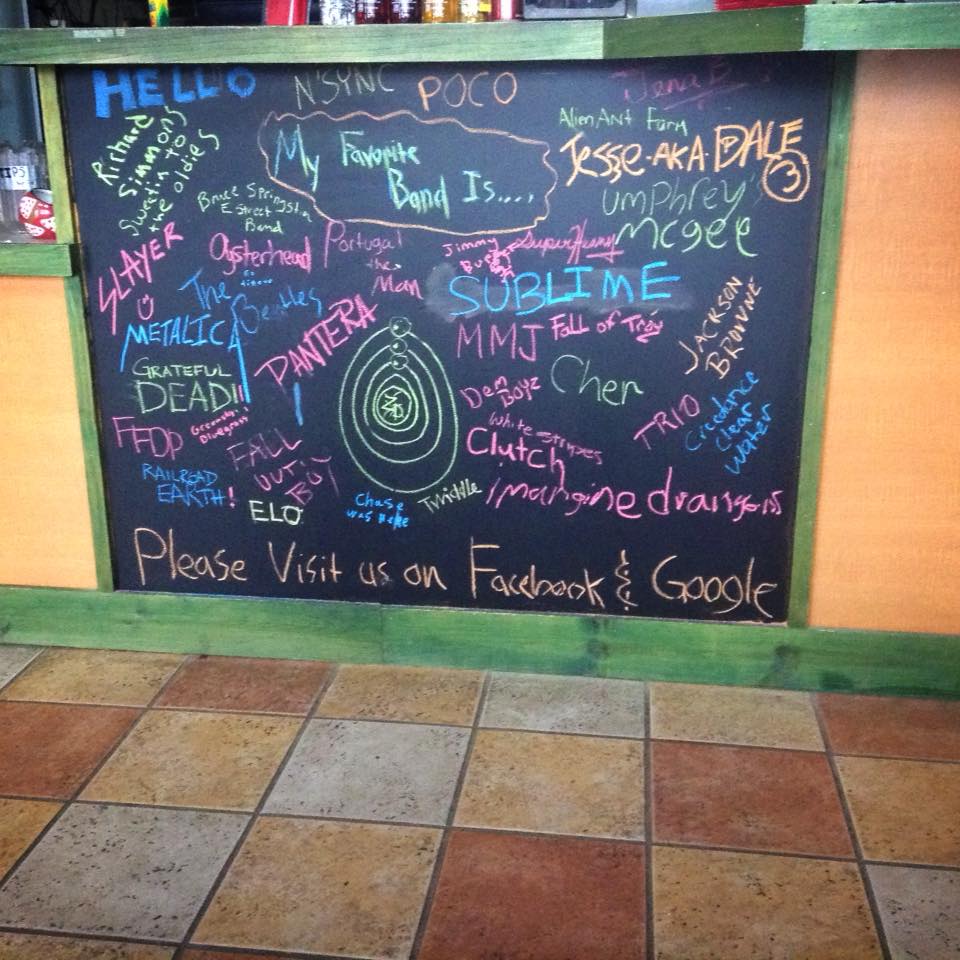 TIPS
HELLO
N'SYNC
POCO
Jana B
Richard
Simmons
Sweatin to
the oldies
My Favorite
Band Is....
Alien Ant Farm
Jesse-AKA-DALE
3
Bruce Springstin
E Street
Band
Umphrey's
Mcgee
SLAYER
Oysterhead
Portugal
the
Man
Jimmy
Superheavy
The
Beatles
SUBLIME
METALICA
PANTERA
MMJ
Fall of Troy
JACKSON
BROWNE
GRATEFUL
DEAD!!
Dem
Boyz
Cher
FFDP
Bluegrass
White Stripes
Clutch
TRIO
Creedance
Clear
Water
FALL
OUT
BOY
RAILROAD
EARTH!
ELO
Chase
was here
Twiddle
imangine drangons
Please Visit us on Facebook & Google